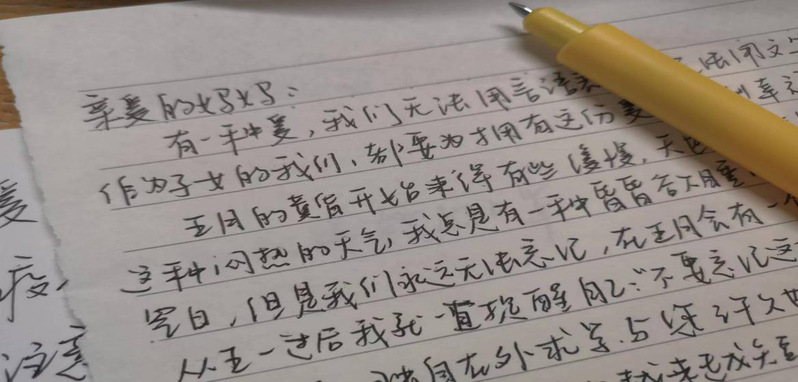 亲爱的妈妈:
有一种爱,我们无法用言语表 法用文字
作为子女的我们,都要为拥有这份爱
五月的黄昏开始来得有些缓慢,天
这种闷热的天气,我总是有一种昏昏
空白,但是我们永远无法忘记,在五月会有一个
从五一过后我就一直提醒自己:“不要忘记这
在外求学,与您许久
爱
疫,
注意